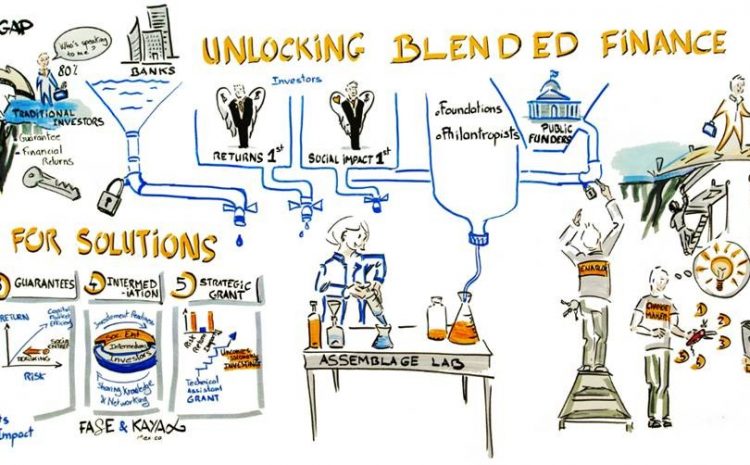 GAP
UNLOCKING BLENDED FINANCE
Who's speaking
to me?
80%
BANKS
TRADITIONAL
INVESTORS
- Guarantee
- Financial
Returns
Investors
RETURNS 1st
SOCIAL IMPACT 1st
Foundations
Philantropists
PUBLIC
FUNDERS
FOR SOLUTIONS
GUARANTEES
RETURN
Capital
Market
RISK
4 INTERMED
-IATION
Investment Readiness
Soc. Ent
Intermediary
Investors
Sharing Knowledge
& Networking
5 STRATEGIC
GRANT
Risk
Return
Impact
Technical
Assistant
GRANT
Impact
FASE & KAYA
Mexico
ASSEMBLAGE LAB
ENABLER
CHANGE
MAKER